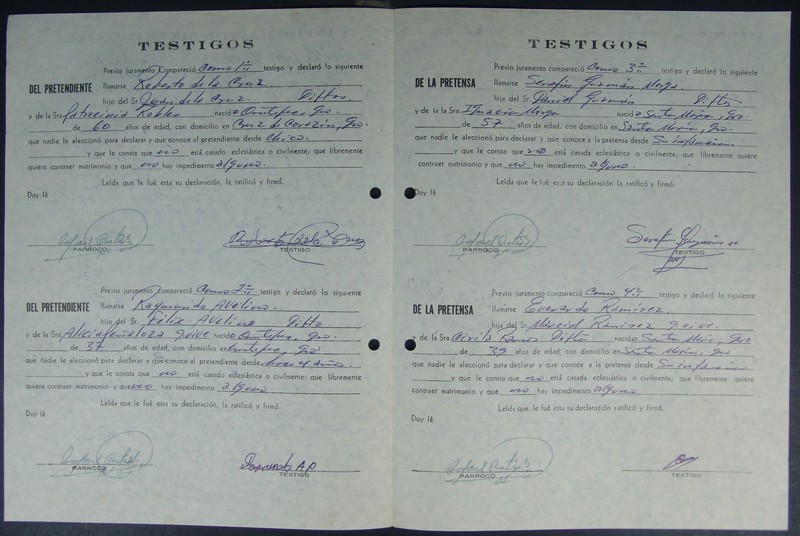 TESTIGOS
Previo juramento Compareció Como 1º testigo y declaró lo siguiente
DEL PRETENDIENTE llamarse Roberto de la Cruz.
hijo del Sr. Juan de la Cruz Diftos.
y de la Sra. Patrocinia Robles nacido Ometepec, Gro.
de 60 años de edad, con domicilio en Cruz de Corazón, Gro.
que nadie le aleccionó para declarar y que conoce al pretendiente desde Chico.
y que le consta que no está casado eclesiástica o civilmente; que libremente
quiere contraer matrimonio y que no hay impedimento alguno.
Leída que le fué esta su declaración, la ratificó y firmó.
Doy fé
PARROCO
TESTIGO
Previo juramento compareció Como 2º testigo y declaró lo siguiente
DEL PRETENDIENTE llamarse Raymundo Avelino.
hijo del Sr. Félix Avelino Difto
y de la Sra. Alicia Peñaloza q vive nacido Ometepec, Gro.
de 37 años de edad, con domicilio en Ometepec, Gro
que nadie le aleccionó para declarar y que conoce al pretendiente desde hace 4 años.
y que le consta que no está casado eclesiástica o civilmente: que libremente
quiere contraer matrimonio y que no hay impedimento alguno
Leída que le fué esta su declaración, la ratificó y firmó.
Doy fé
PARROCO
TESTIGO
TESTIGOS
Previo juramento compareció Como 3º testigo y declaró lo siguiente
DE LA PRETENSA llamarse Serafín Guzmán Morga
hijo del Sr. David Guzmán Diftos
y de la Sra. Ignacia Morga nacido Santa María, Gro.
de 57 años de edad, con domicilio en Santa María, Gro.
que nadie le aleccionó para declarar y que conoce a la pretensa desde Su infancia.
y que le consta que no está casada eclesiástica o civilmente, que libremente quiere
contraer matrimonio y que no hay impedimento alguno.
Leída que le fué esta su declaración, la ratificó y firmó.
Doy fé
PARROCO
TESTIGO
Previo juramento compareció Como 4º testigo y declaró lo siguiente
DE LA PRETENSA llamarse Everardo Ramírez.
hijo del Sr. Ramírez q vive.
y de la Sra. Difto nacido Santa María, Gro
de 39 años de edad, con domicilio en Santa María, Gro
que nadie le aleccionó para declarar y que conoce a la pretensa desde Su infancia
y que le consta que no está casada eclesiástica o civilmente; que libremente quiere
contraer matrimonio y que no hay impedimento alguno
Leída que le fué esta su declaración la ratificó y firmó.
Doy fé
PARROCO
TESTIGO